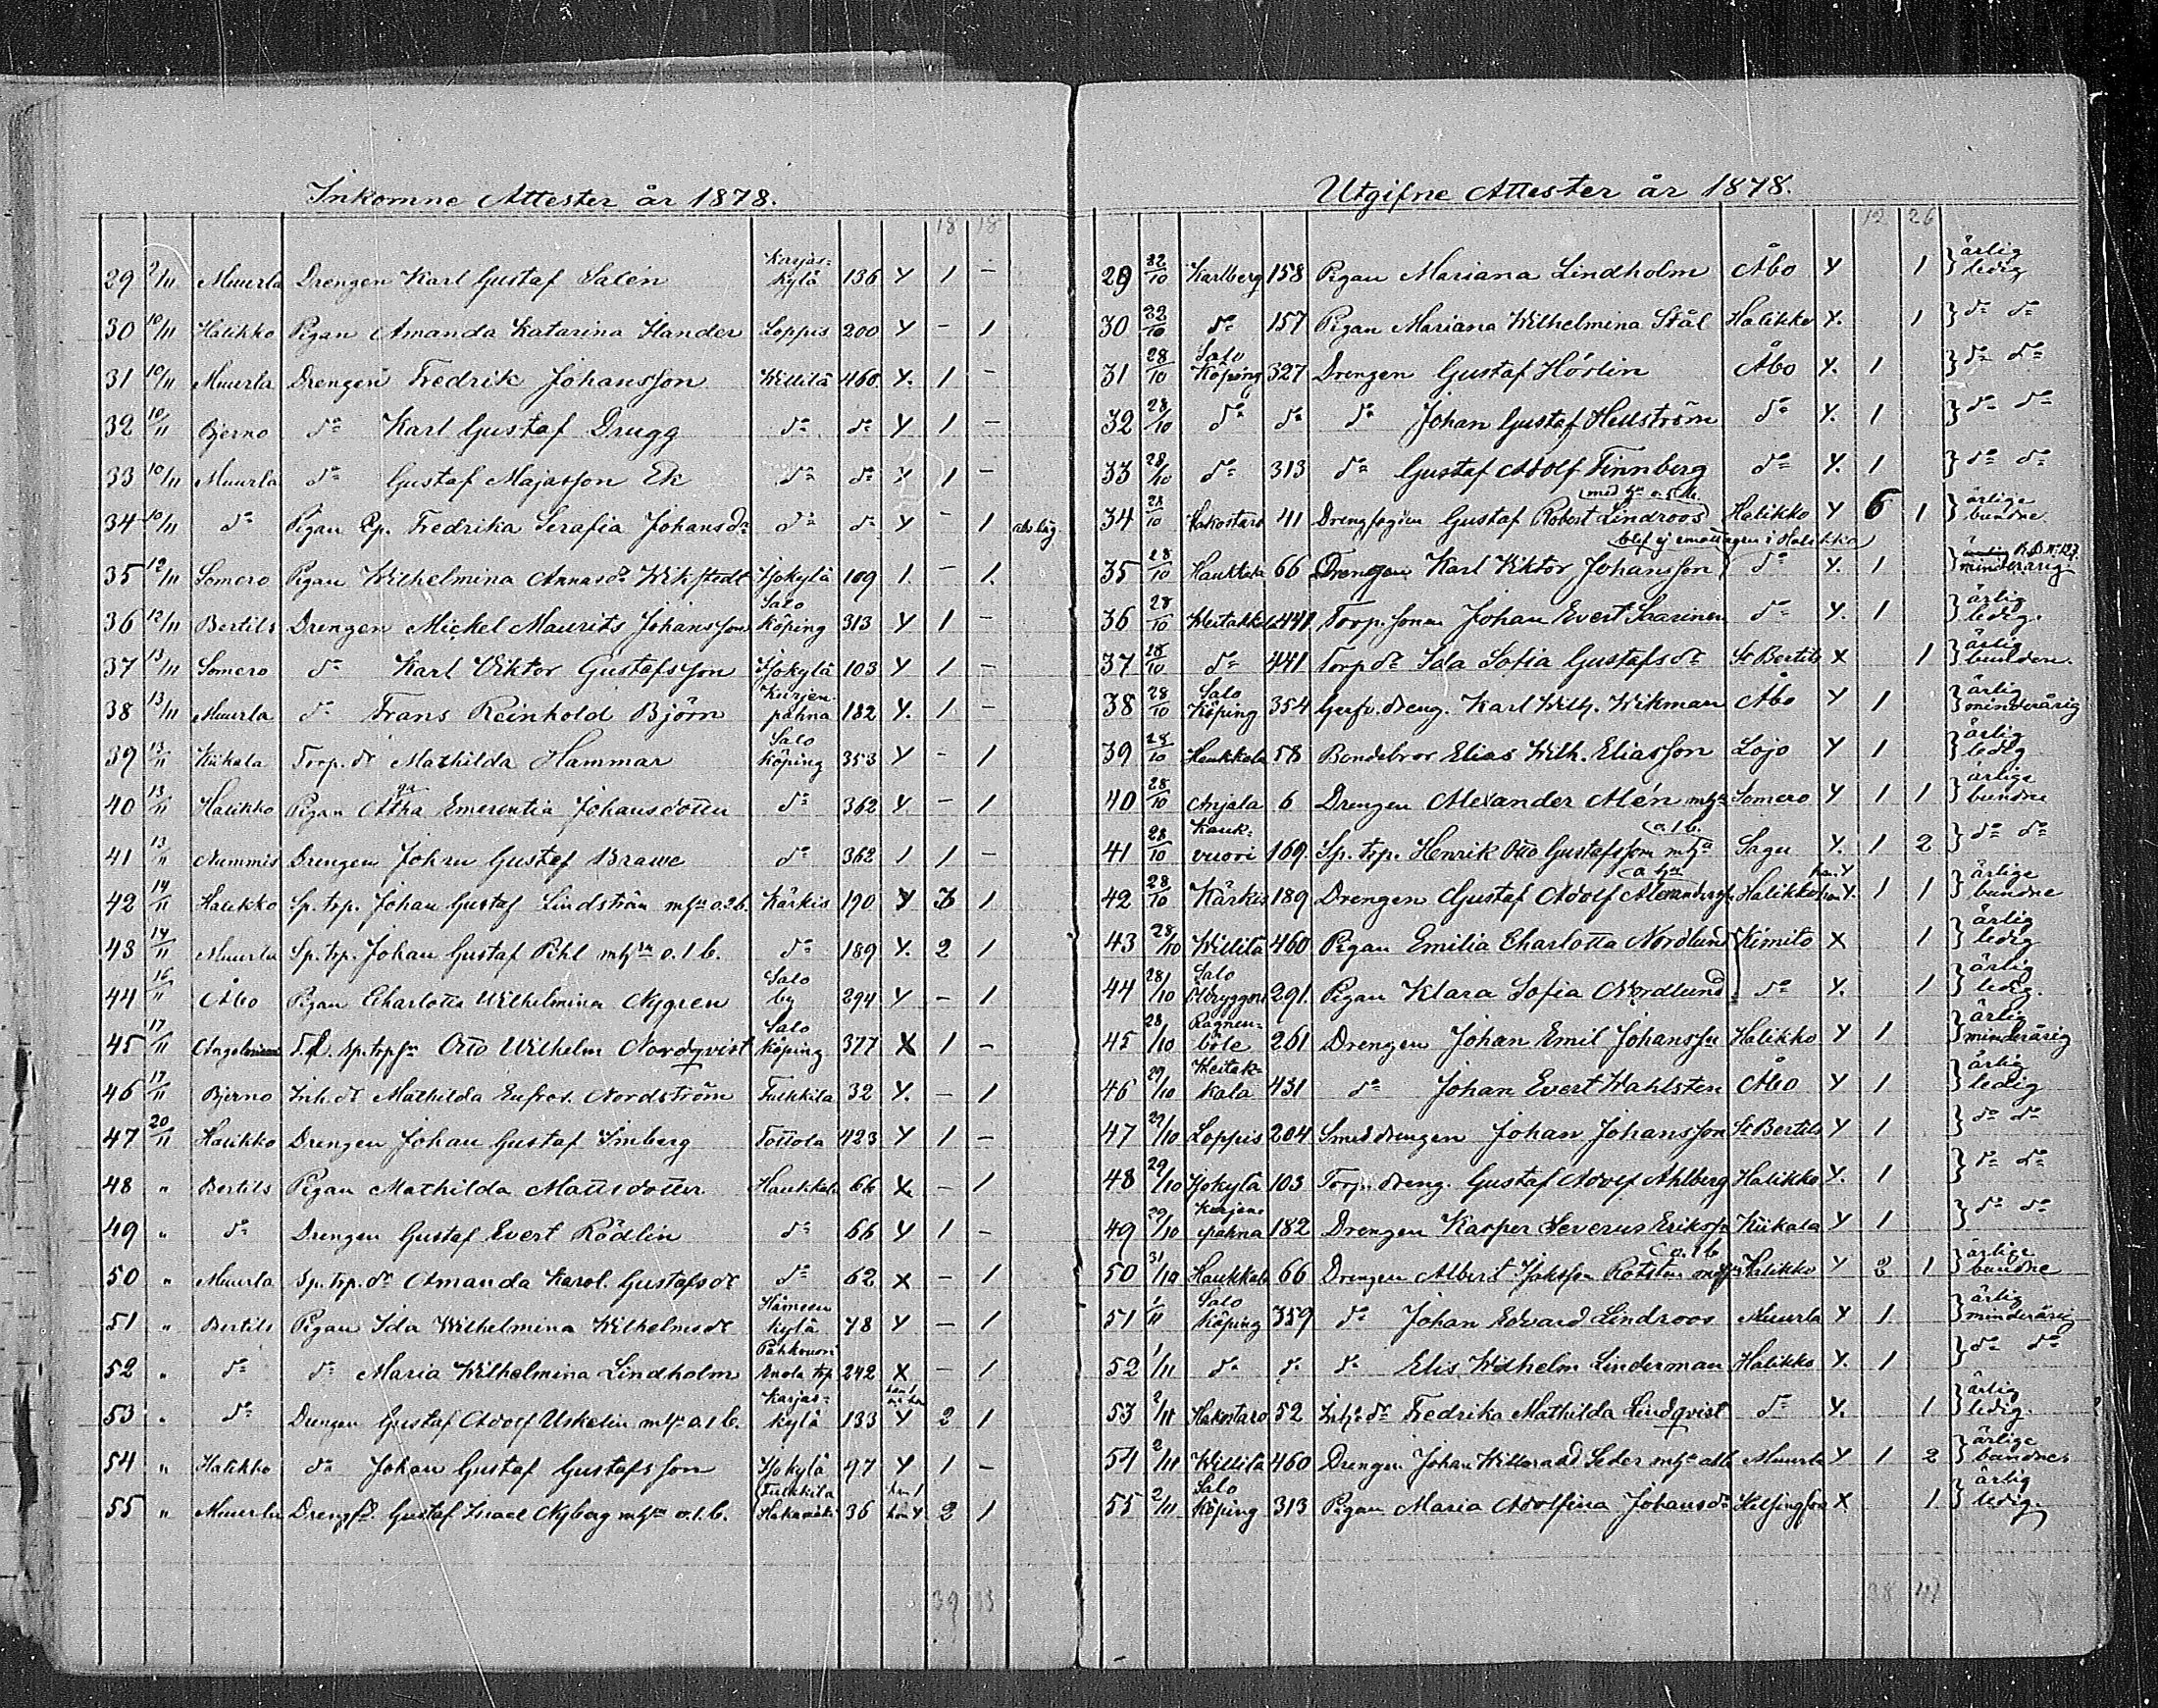 Inkomne Attester år 1878.
18 18
29 9/11 Muurla Drengen Karl Gustaf Salén Karjas-kylä 136 Y 1 –
30 10/11 Halikko Pigan Amanda Katarina Hander Loppis 200 Y – 1
31 10/11 Muurla Drengen Fredrik Johansson Willilä 460 Y. 1 –
32 10/11 Bjerno do Karl Gustaf Drugg do do Y 1 –
33 10/11 Muurla do Gustaf Majasson Ek do do Y 1 –
34 10/11 do Pigan Ep. Fredrika Serafia Johansdr do do Y – 1
35 12/11 Somero Pigan Wilhelmina Annasdr Wikstedt Isokylä 109 1. – 1.
36 12/11 Bertils Drengen Mickel Maurits Johansson Salo Köping 313 Y 1 –
37 13/11 Somero do Karl Viktor Gustafsson Isokylä 103 Y 1 –
38 13/11 Muurla do Frans Reinhold Björn Kurjen-pahna 182 Y. 1 –
39 13/11 Kiikala Torp.dr Mathilda Hammar Salo Köping 353 Y – 1
40 13/11 Halikko Pigan Emerentia Johansdotter do 362 Y. – 1
41 13/11 Nummis Drengen Johan Gustaf Brawe do 362 1 1 –
42 14/11 Halikko Sp. trp. Johan Gustaf Lindström mhu o. 2 b. Kärkis 190 Y 3 1
43 14/11 Muurla Sp. trp. Johan Gustaf Pihl mhu o. 1 b. do 189 Y. 2 1
44 16/11 Åbo Pigan Charlotta Wilhelmina Nygren Salo by 294 Y – 1
45 17/11 Angelniemi T.f. sp.trpsn Otto Wilhelm Nordqvist Salo Köping 377 X 1 –
46 17/11 Bjerno Inh.dr Mathilda Eufros. Nordström Fulkkila 32 Y. – 1
47 20/11 Halikko Drengen Johan Gustaf Imberg Tottola 423 Y 1 –
48 " Bertils Pigan Mathilda Mattsdotter Haukkala 66 X – 1
49 " do Drengen Gustaf Evert Rödlin do 66 Y 1 –
50 " Muurla Sp. trp. dr Amanda Karol. Gustafsdr do 62 X – 1
51 " Bertils Pigan Ida Wilhelmina Wilhelmsdr Hämeen kylä 78 Y – 1
52 " do do Maria Wilhelmina Lindholm trp 242 X – 1
53 " do Drengen Gustaf Adolf Uskelin mhu o. 1 b. Karjas-kylä 133 Y 2 1
54 " Halikko do Johan Gustaf Gustafsson Isokylä 97 Y 1 –
55 " Muurla Gustaf Israel Nyberg mhu o. 1 b. Fulkkila 36 han 1 hon Y 2 1
39 13
Utgifne Attester år 1878.
12 26
29 22/10 Karlberg 158 Pigan Mariana Lindholm Åbo Y 1 } ärlig ledig
30 22/10 do 157 Pigan Mariana Wilhelmina Stål Halikko Y. 1 } do do
31 28/10 Salo Köping 327 Drengen Gustaf Hörlin Åbo Y. 1 } do do
32 28/10 do do do Johan Gustaf Hellström do Y. 1 } do do
33 28/10 do 313 do Gustaf Adolf Finnberg do Y. 1 } do do
34 28/10 Hakostaro 41 Gustaf Robert Lindroos med hu o. 5 b. Halikko Y 6 1 } ärlige bundne
blef ej emottagen i Halikko
35 28/10 Haukkala 66 Drengen Karl Viktor Johansson do Y. 1 } minderårig
36 28/10 441 Torp. sonen Johan Evert Saarinen do Y. 1 } ärlig ledig.
37 28/10 do 441 Torp dr Ida Sofia Gustafsdr St Bertils X 1 } ärlig bunden.
38 28/10 Salo Köping 354 Garfv. dreng. Karl Wilh. Wikman Åbo Y 1 } ärlig minderårig
39 28/10 Haukkala 58 Bondebror Elias Wilh. Eliasson Lojo Y 1 } ärlig ledig
40 28/10 Anjala 6 Drengen Alexander Alén mhu Somero Y 1 1 } ärlige bundne
41 28/10 Kauk-vuori 169 Sp. trp. Henrik Otto Gustafsson mhu o. 1 b. Sagu Y. 1 2 } do do
42 28/10 Kärkis 189 Drengen Gustaf Adolf Alexanderss. Halikko 1 1 } ärlige bundne
43 28/10 Willilä 460 Pigan Emilia Charlotta Nordlund Kimito X 1 } ärlig ledig
44 28/10 Salo 291. Pigan Klara Sofia Nordlund do Y. 1 } ärlig ledig.
45 28/10 Ragnen-böle 261 Drengen Johan Emil Johansson Halikko Y 1 } ärlig minderårig
46 29/10 Keitak-kala 431 do Johan Evert Wahlsten Åbo Y 1 } ärlig ledig
47 29/10 Loppis 204 Smeddrengen Johan Johansson St Bertils Y 1 } do do
48 29/10 Isokylä 103 Torp. dreng. Gustaf Adolf Ahlberg Halikko Y. 1 } do do
49 29/10 Kurjen-pahna 182 Drengen Kasper Severus Eriksson Kiikala Y 1 } do do
50 31/10 Haukkala 66 Drengen Albert Jakobsson Rotstén mhu o. 1 b. Halikko Y 2 1 } ärlige bundne
51 1/11 Salo Köping 359 do Johan Edvard Lindroos Muurla Y 1. } ärlig minderårig
52 1/11 do do do Elis Wilhelm Linderman Halikko Y. 1 } do do
53 2/11 Hakostaro 52 Inh. dr Fredrika Mathilda Lindqvist do Y. 1 } ärlig ledig.
54 2/11 Willilä 460 Drengen Johan Seder mhu o. 1 b. Muurla Y 1 2 } ärlige bundne
55 2/11 Salo Köping 313 Pigan Maria Adolfina Johansdr Helsingfors X 1 } ärlig ledig.